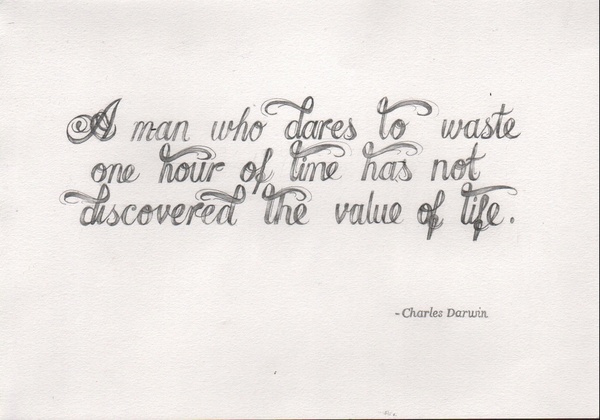 A man who dares to waste
one hour of time has not
discovered the value of life.
-Charles Darwin